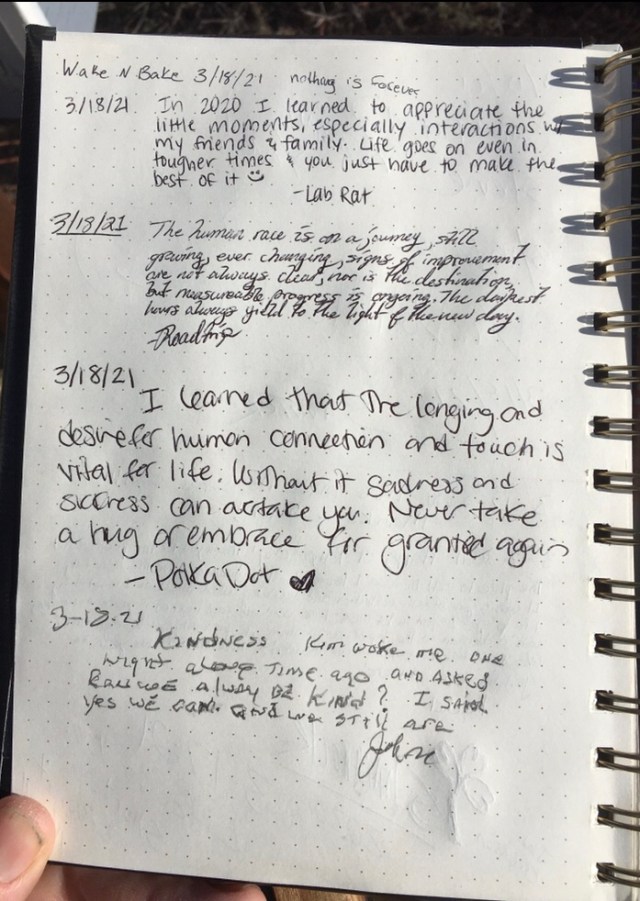 Wake N Bake 3/18/21 nothing is Forever
3/18/21 In 2020 I learned to appreciate the
little moments, especially interactions w/
my friends & family. Life goes on even in
tougher times & you just have to make the
best of it
-Lab Rat
3/18/21 The human race is on a journey, still
growing, ever changing, signs of improvement
are not always clear, nor is the destination,
but measureable progress is ongoing. The darkest
hours always yield to the light of the new day.
-Roadtrip
3/18/21
I learned that the longing and
desire for human connection and touch is
vital for life. Without it sadness and
sickness can overtake you. Never take
a hug or embrace for granted again
- Polka Dot
3-18-21
KINDNESS Kim woke me one
night a long time ago and asked
can we alway be kind? I said
yes we can. and we still are
John